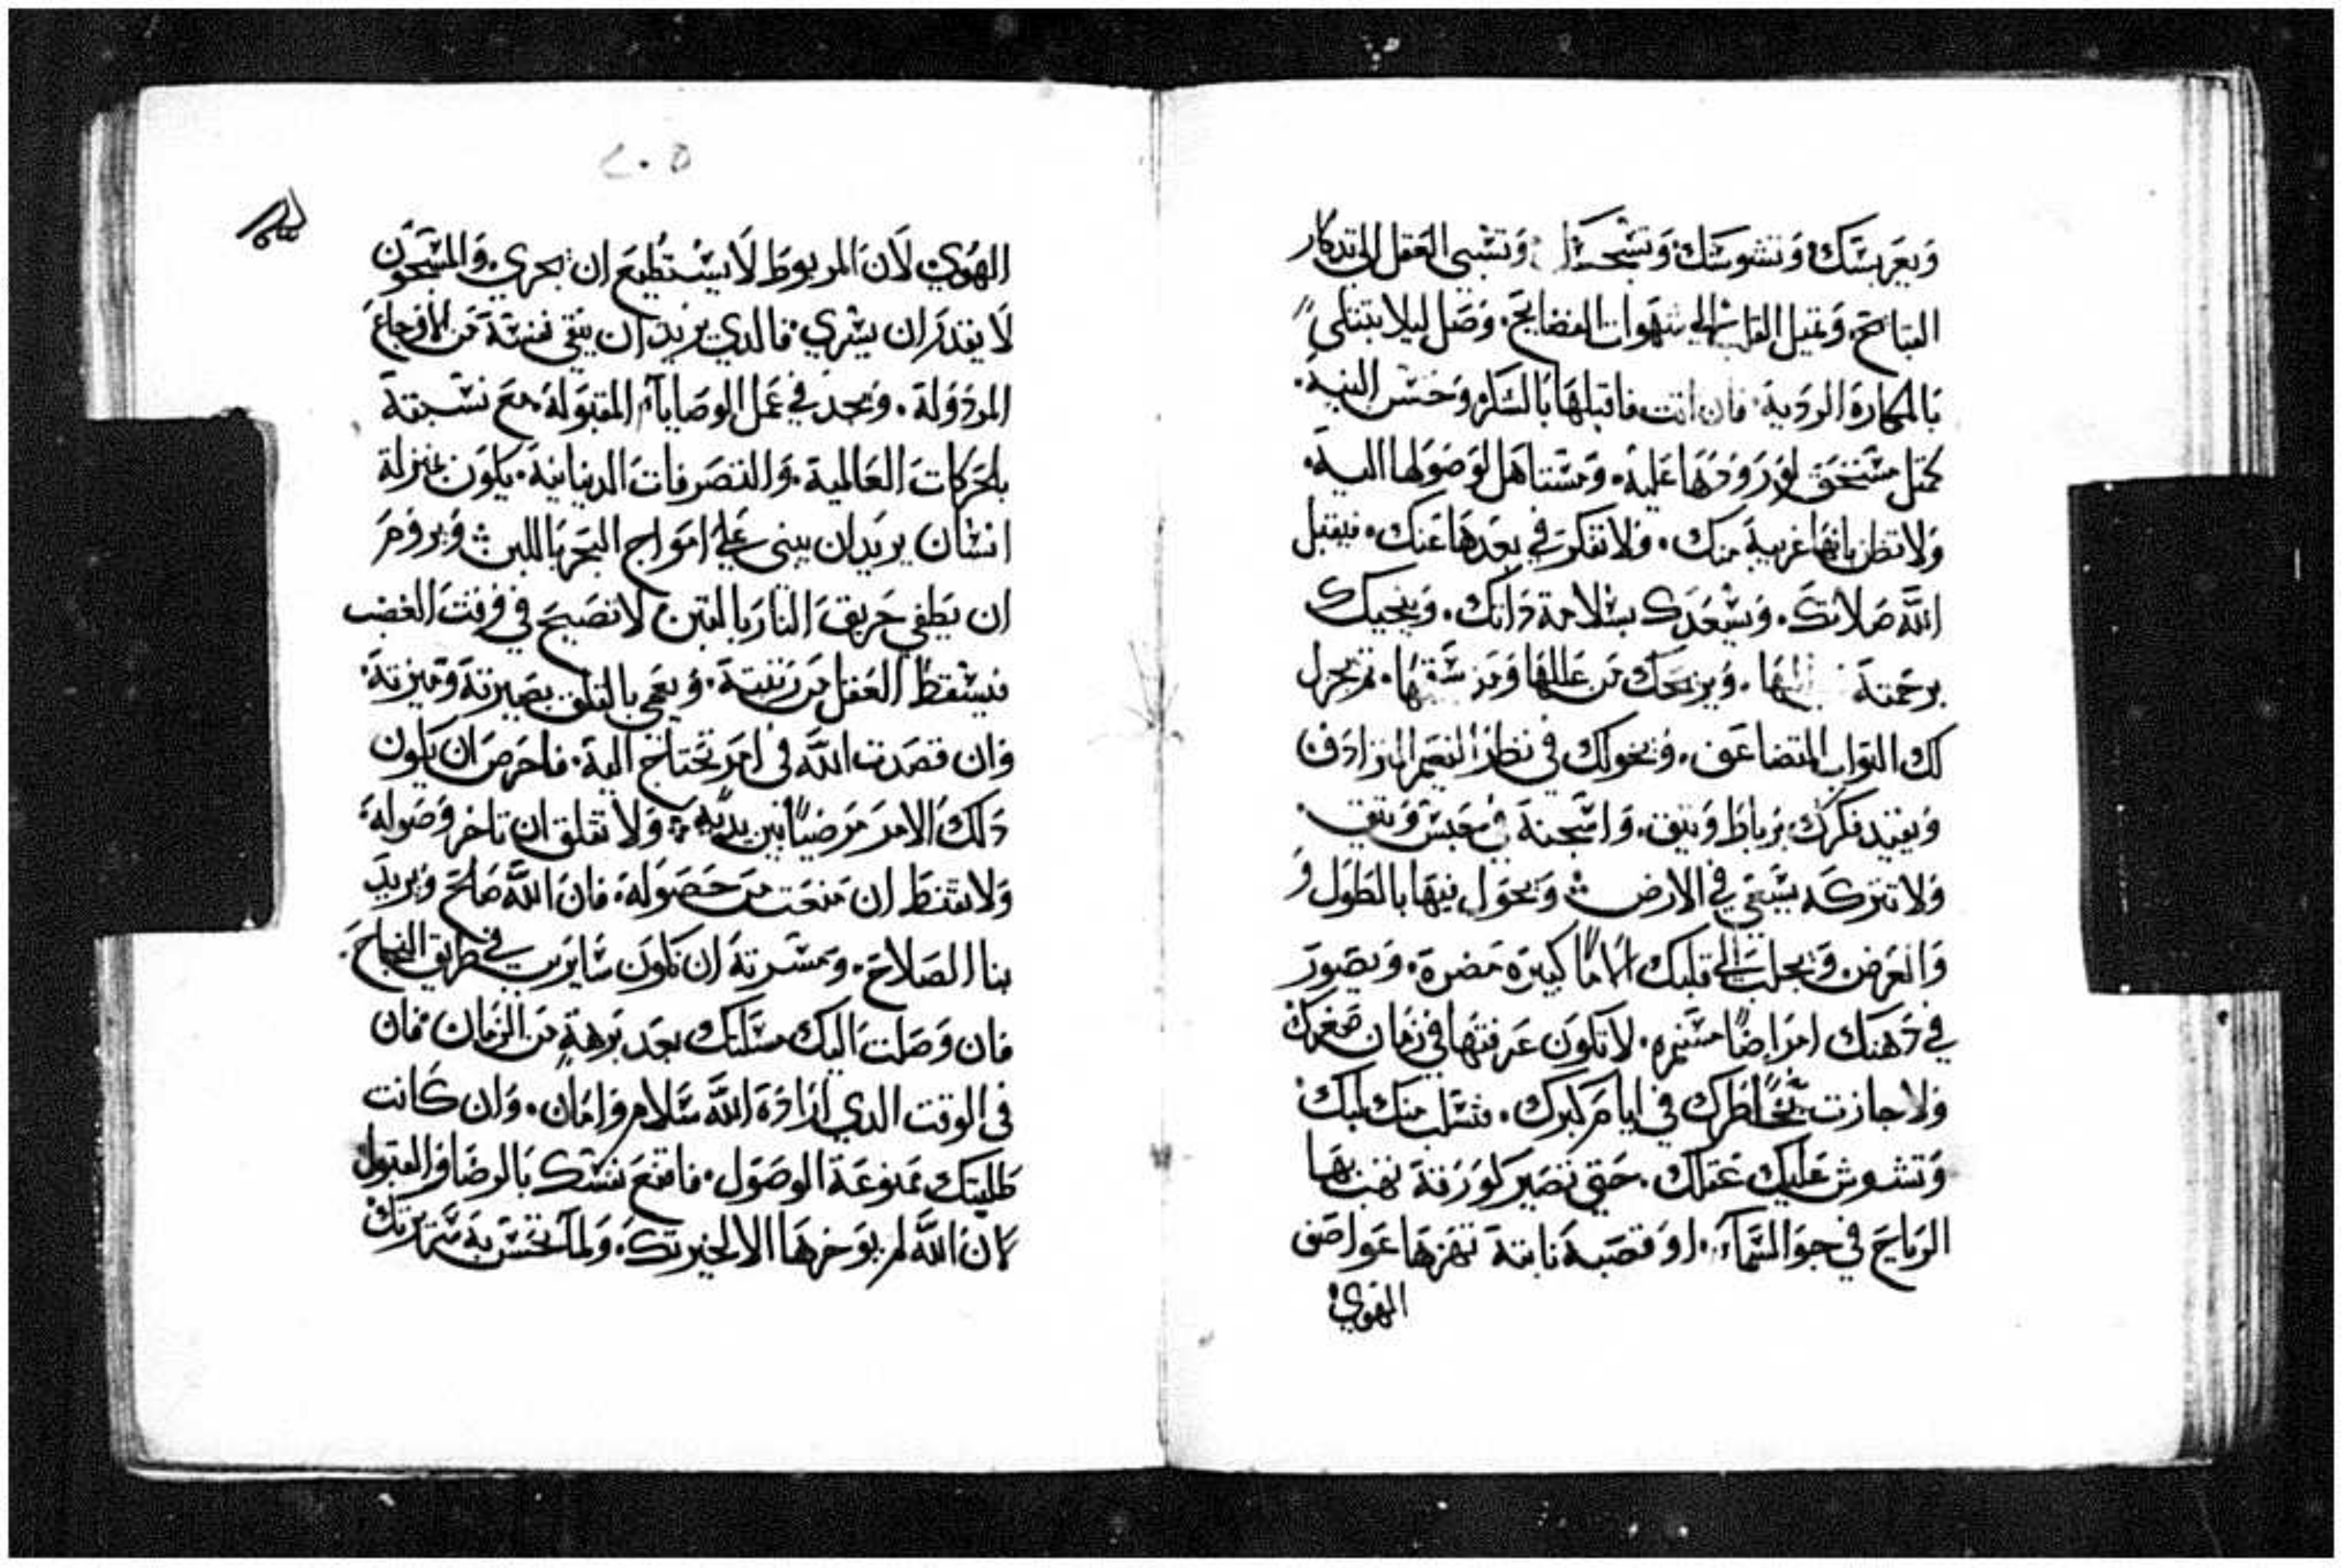 وتعربسك وتشوشك وتسجسك وتسبي العقل الي تدكار
القبايح. وتميل القلب الي شهوات الفضايح. وصل ليلا تبتلي
بالمكاره الردية. فان اتت فاقبلها بالشكر وحسن النية.
كمثل مستحق لورودها عليه. ومستاهل لوصولها اليه.
ولا تظن بانها غريبة منك. ولا تفكر في بعدها عنك. فيقبل
الله صلاتك. ويسعدك بسلامة داتك. وينجيك
برحمته منها. ويريحك من عللها ومن سقمها. ثم يجزل
لك التواب المتضاعف. ويخولك في نظر النعيم المترادف
وتقيد فكرك برباط وتيق. واسجنه في محبس وتيق.
ولا تتركه يسعي في الارض ويجول فيها بالطول و
والعرض. ويجلب الي قلبك الاما كبيره مضرة. ويصور
في دهنك امراضا مستمره. لا تكون عرفتها في زمان صغرك
ولا جازت بخاطرك في ايام كبرك. فتسلب منك لبك
وتشوش عليك عقلك. حتي تصير كورقة تهب بها
الرياح في جو السماء. او قصبة نابتة تهزها عواصف
الهوي
٢٠٥
الهوي لان المربوط لا يستطيع ان يجري. والمسجون
لا يقدر ان يسري. فالدي يريد ان ينقي نفسة من الاوجاع
المردولة. ويجد في عمل الوصايا المقبولة. مع نسبته
بالحركات العالمية. والتصرفات الدنيانية. يكون بمنزلة
انسان يريد ان يبني علي امواج البحر باللبن ويروم
ان يطفي حريق النار بالتبن لا تصيح في وقت الغضب
فيسقط العقل من رتبتة. ويعمي بالقلق بصيرتة وميزتة.
وان قصدت الله في امر تحتاج الية. فاحرص ان يكون
دلك الامر مرضيا بين يدية. ولا تقلق ان تاخر وصولة.
ولا تقنط ان منعت من حصولة. فان الله صالح ويريد
بنا الصلاح. ومسرتة ان نكون سايرين في طريق النجاح.
فان وصلت اليك مسلتك بعد برهة من الزمان. فان
في الوقت الدي اراده الله سلام وامان. وان كانت
طلبتك ممنوعة الوصول. فاقنع نفسك بالرضا والقبول
لان الله لم يوخرها الا لخيرتك. ولما تحسن به سريرتك